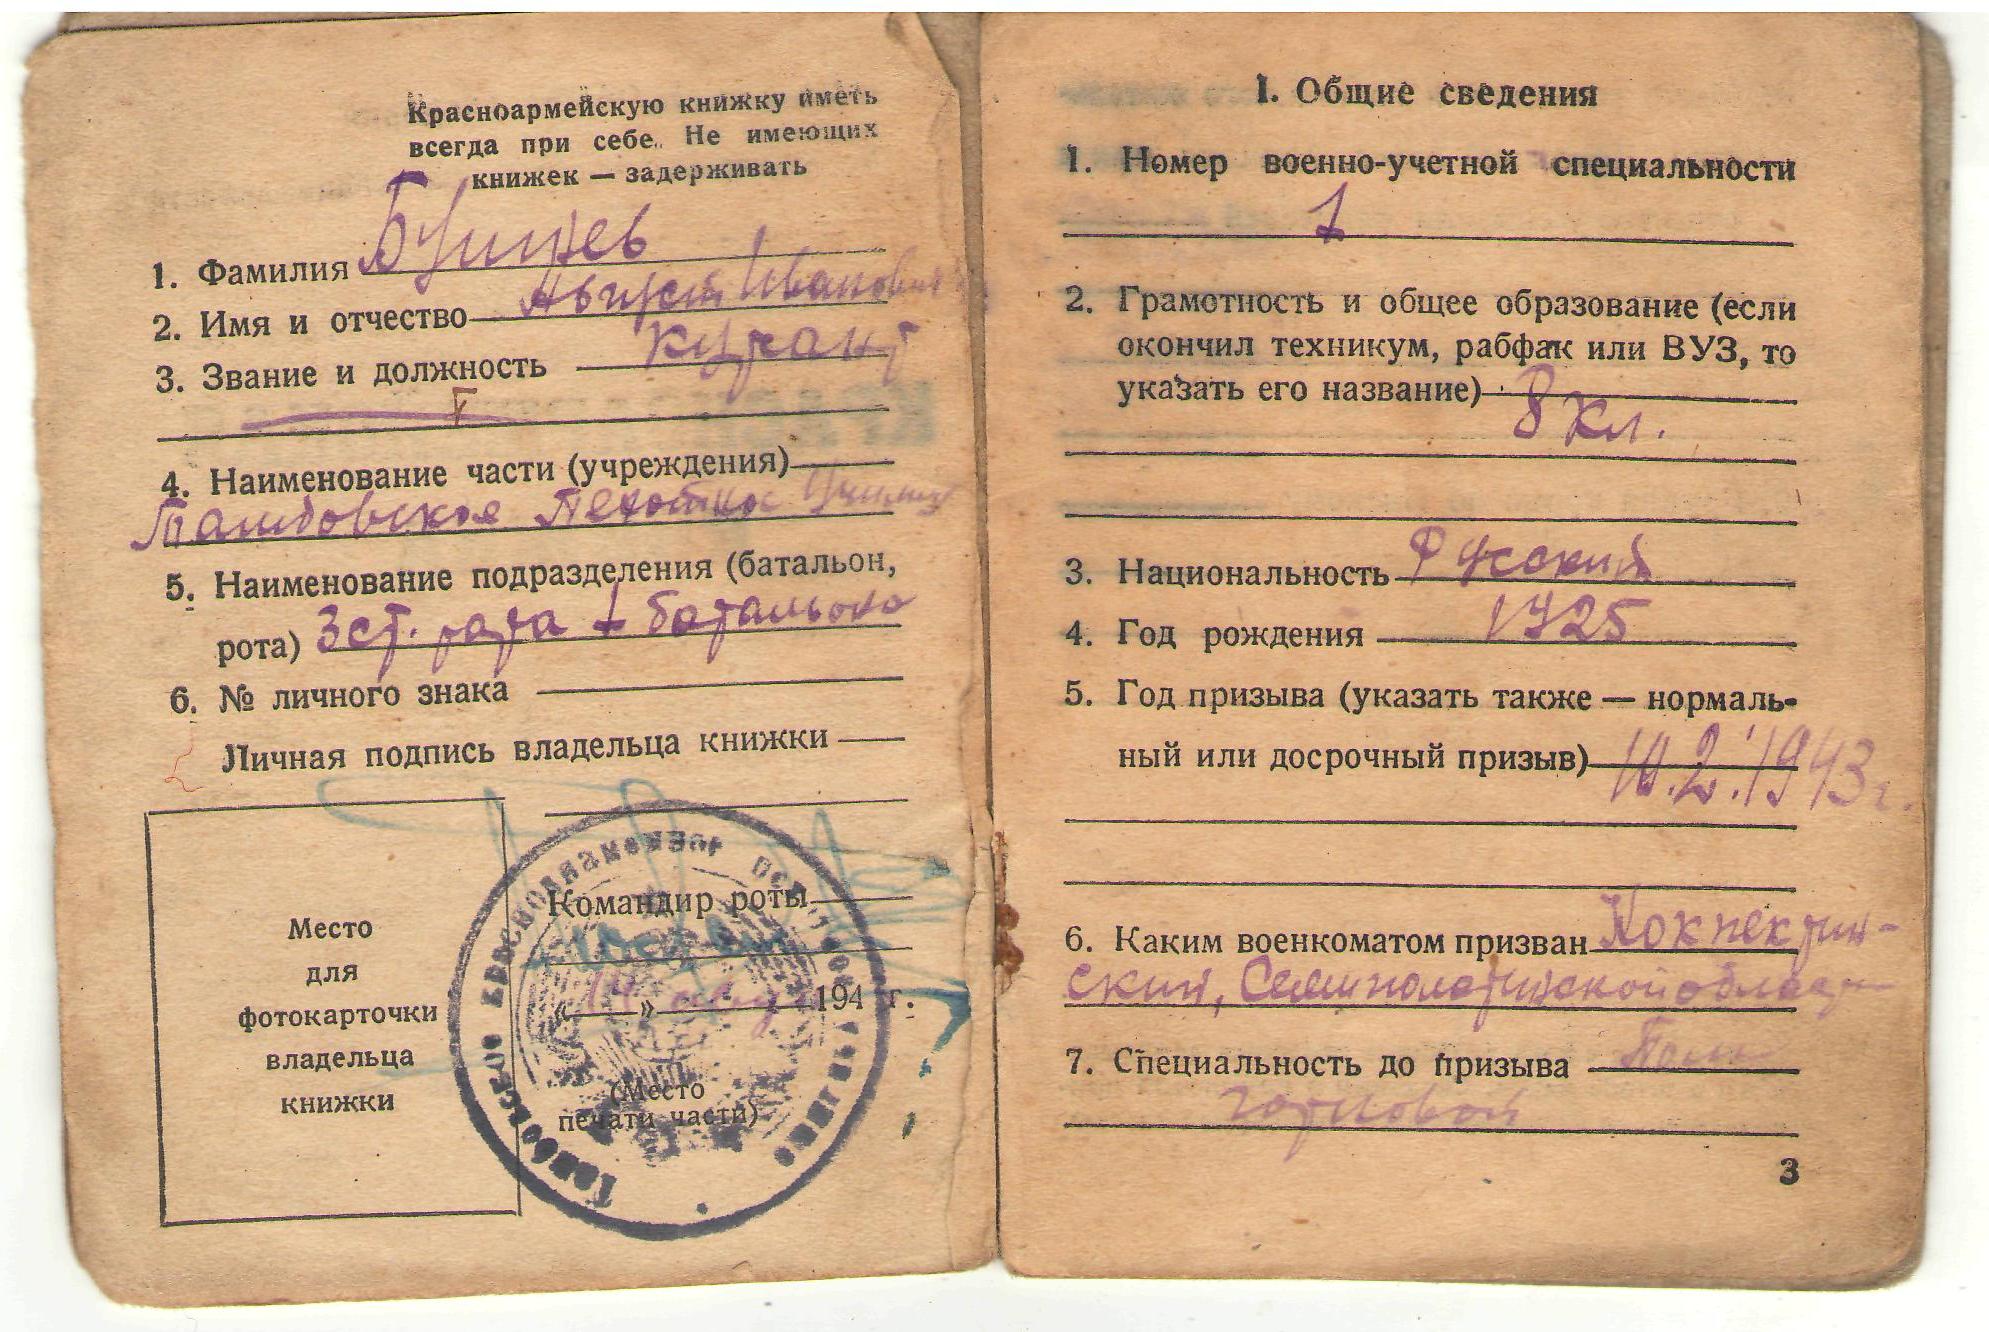 Красноармейскую книжку иметь
всегда при себе. Не имеющих
книжек — задерживать
1. Фамилия
2. Имя и отчество Август Иванович
3. Звание и должность курсант
4. Наименование части (учреждения)
Тамбовское Пехотное Училище
5. Наименование подразделения (батальон,
рота) 3 ст. рота 1 батальона
6. № личного знака
Личная подпись владельца книжки
Место
для
фотокарточки
владельца
книжки
Командир роты
«14» 194 г.
(Место
печати части)
Тамбовское Краснознаменное пехотное училище
I. Общие сведения
1. Номер военно-учетной специальности
1
2. Грамотность и общее образование (если
окончил техникум, рабфак или ВУЗ, то
указать его название)
8 кл.
3. Национальность Русский
4. Год рождения 1925
5. Год призыва (указать также — нормаль-
ный или досрочный призыв) 10.2.1943 г.
6. Каким военкоматом призван Кокпектин-
ский, Семипалатинской области
7. Специальность до призыва
3